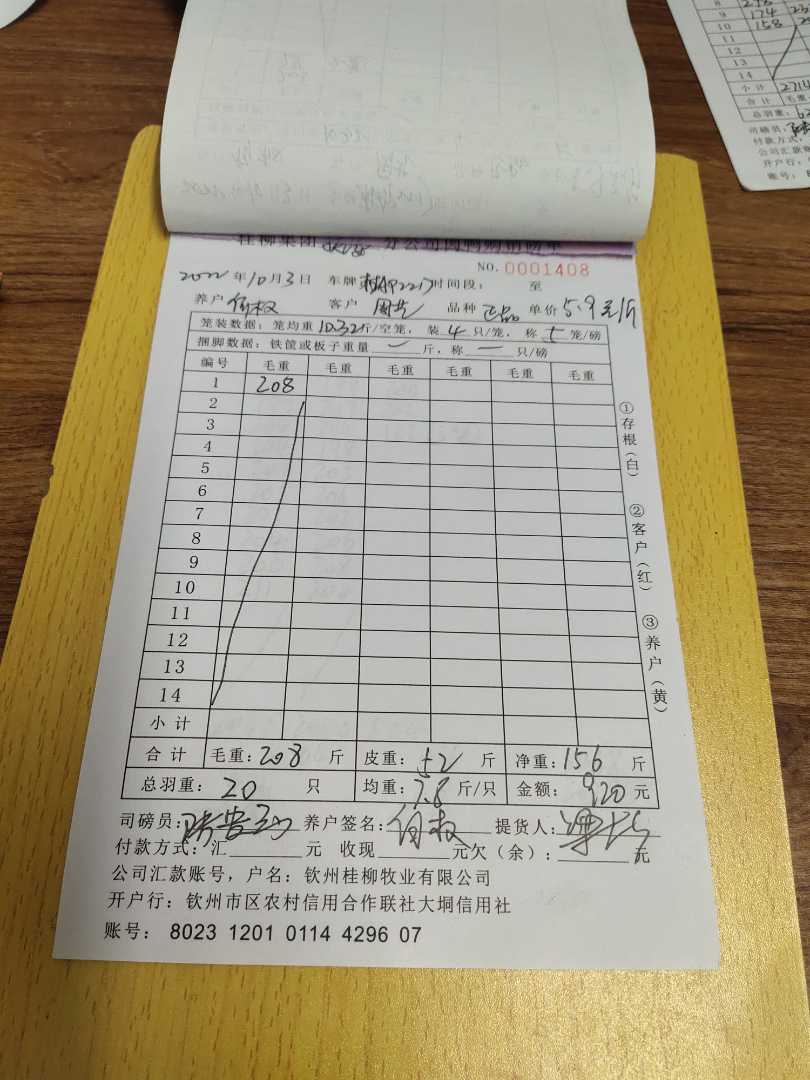 NO. 0001408
2022年10月3日 车牌 时间段： 至
养户 何权 客户 周艺 品种 正品 单价 5.9元/斤
笼装数据：笼均重10.32斤/空笼，装4只/笼，称5笼/磅
捆脚数据：铁筐或板子重量 一 斤，称 一 只/磅
编号 毛重 毛重 毛重 毛重 毛重 毛重
1 208
2
3
4
5
6
7
8
9
10
11
12
13
14
小计
合计 毛重：208 斤 皮重：52 斤 净重：156 斤
总羽重：20 只 均重：7.8 斤/只 金额：920 元
司磅员： 养户签名：何权 提货人：
付款方式：汇 元 收现 元欠（余）： 元
公司汇款账号，户名：钦州桂柳牧业有限公司
开户行：钦州市区农村信用合作联社大垌信用社
账号： 8023 1201 0114 4296 07
①存根（白）
②客户（红）
③养户（黄）
8
9 174
10 158
11
12
13
14
小计 2714
合计 毛重：
总羽重：
司磅员：
付款方式：
公司汇款账
开户行：
账号：